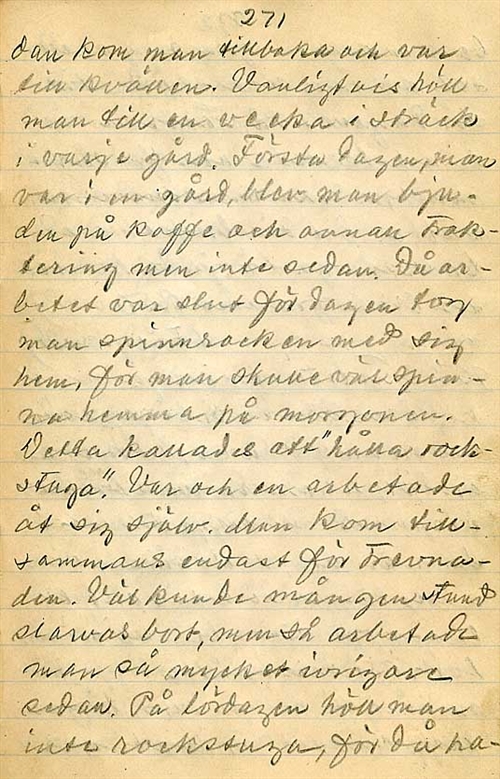 271
dan kom man tillbaka och var
till kvällen. Vanligtvis höll
man till en vecka i sträck
i varje gård. Första dagen, man
var i en gård, blev man bju-
den på kaffe och annan trak-
tering men inte sedan. Då ar-
betet var slut för dagen tog
man spinnrocken med sig
hem, för man skulle väl spin-
na hemma på morgonen.
Detta kallades att "hålla rock-
stuga". Var och en arbetade
åt sig själv. Man kom till-
sammans endast för trevna-
den. Väl kunde mången stund
slarvas bort, men så arbetade
man så mycket ivrigare
sedan. På lördagen höll man
inte rockstuga, för då ha-